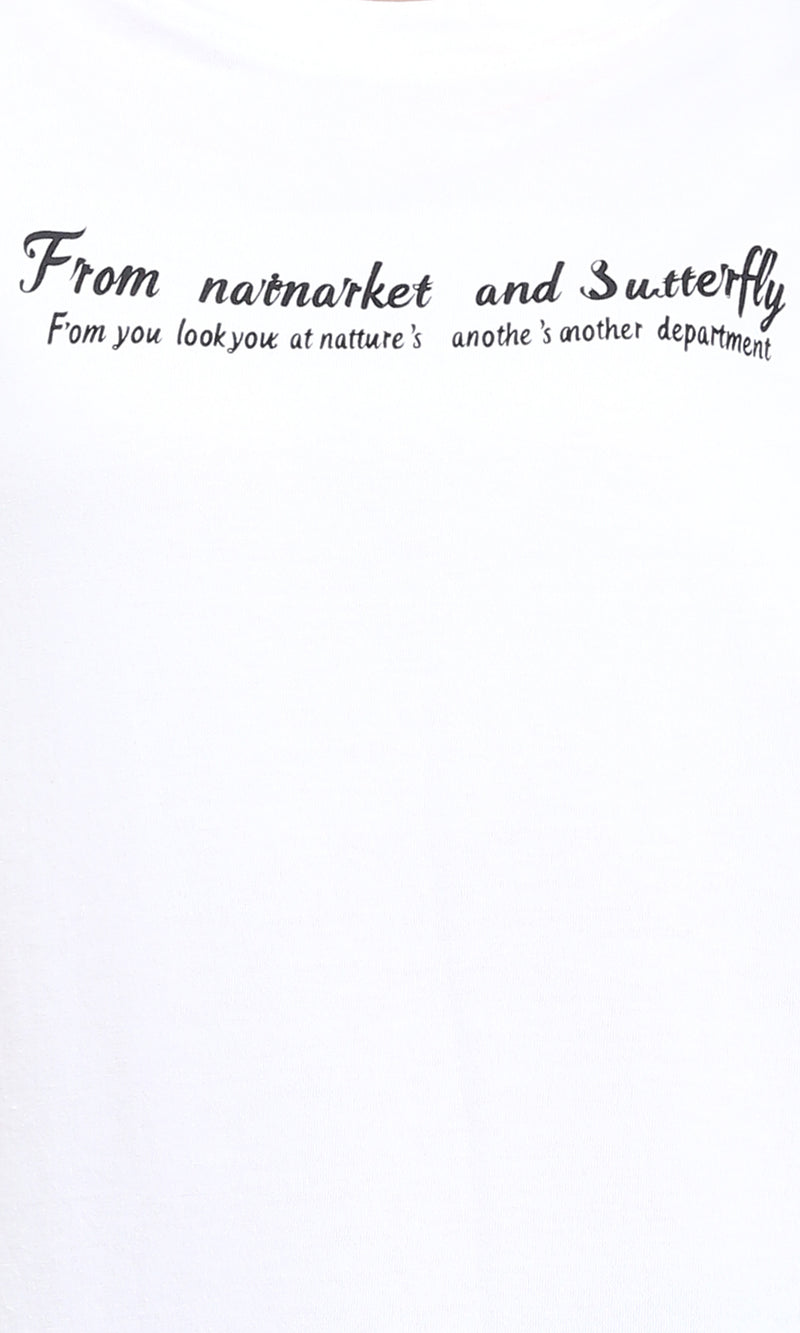 From natnarket and Sutterfly
F'om you look you at natture's anothe's another department